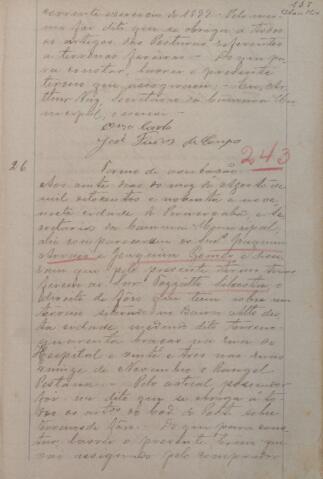 157
corrente exercicio de 1899. Pelo mes-
mo foi dito que se obriga a todos
os artigos das Posturas referentes
a terrenos foreiros. Do que pa-
ra constar, lavrei o presente
termo que assignam. Eu, Ar-
thur Vaz, Secretario da Camara Mu-
nicipal, o escrevi.
José de Campo
243
26
Termo de
Aos vinte dias do mez de Agosto de
mil oitocentos e noventa e nove
nesta cidade de e Se-
cretaria da Camara Municipal,
ahi compareceram os Snrs Joaquim
e Joaquim e disse-
ram que pelo presente termo trans-
ferem ao Snr. Silvestre o
direito de fôro que tem sobre um
terreno situado no Bairro Alto des-
ta cidade, medindo dito terreno
quarenta braças na rua do
Hospital e vinte e tres nas ruas
quinze de Novembro e Rangel
Pestana. Pelo actual possuidor
foi me dito que se obriga à to-
dos os artos do Cod. de Post. sobre
terrenos de fôro. Do que para cons-
tar, lavrei o presente termo que
vai assignado pelo comprador